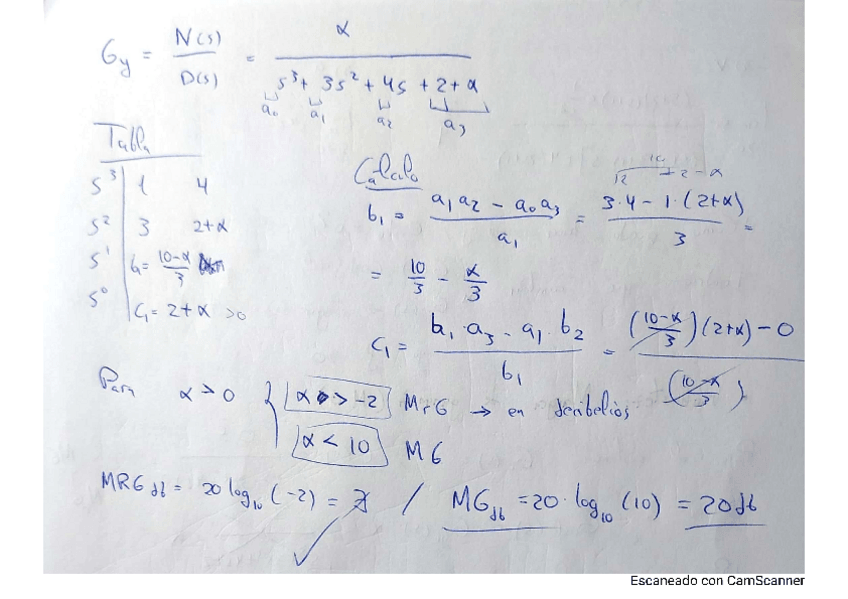 Gy = N(s) / D(s) = α / s³ + 3s² + 4s + 2 + α
a₀ a₁ a₂ a₃
Tabla
s³ | 1 4
s² | 3 2+α
s¹ | b₁= 10-α / 3
s⁰ | C₁ = 2+α >0
Calculo
12 10 +2-α
b₁ = a₁a₂ - a₀a₃ / a₁ = 3·4 - 1·(2+α) / 3 =
= 10/3 - α/3
C₁ = b₁·a₃ - a₁·b₂ / b₁ = (10-α / 3)(2+α) - 0 / (10-α / 3)
Para α > 0 { α > -2 MrG → en decibelios
α < 10 MG
MRG db = 20 log₁₀ (-2) = ∄ / MG db = 20·log₁₀ (10) = 20db
Escaneado con CamScanner